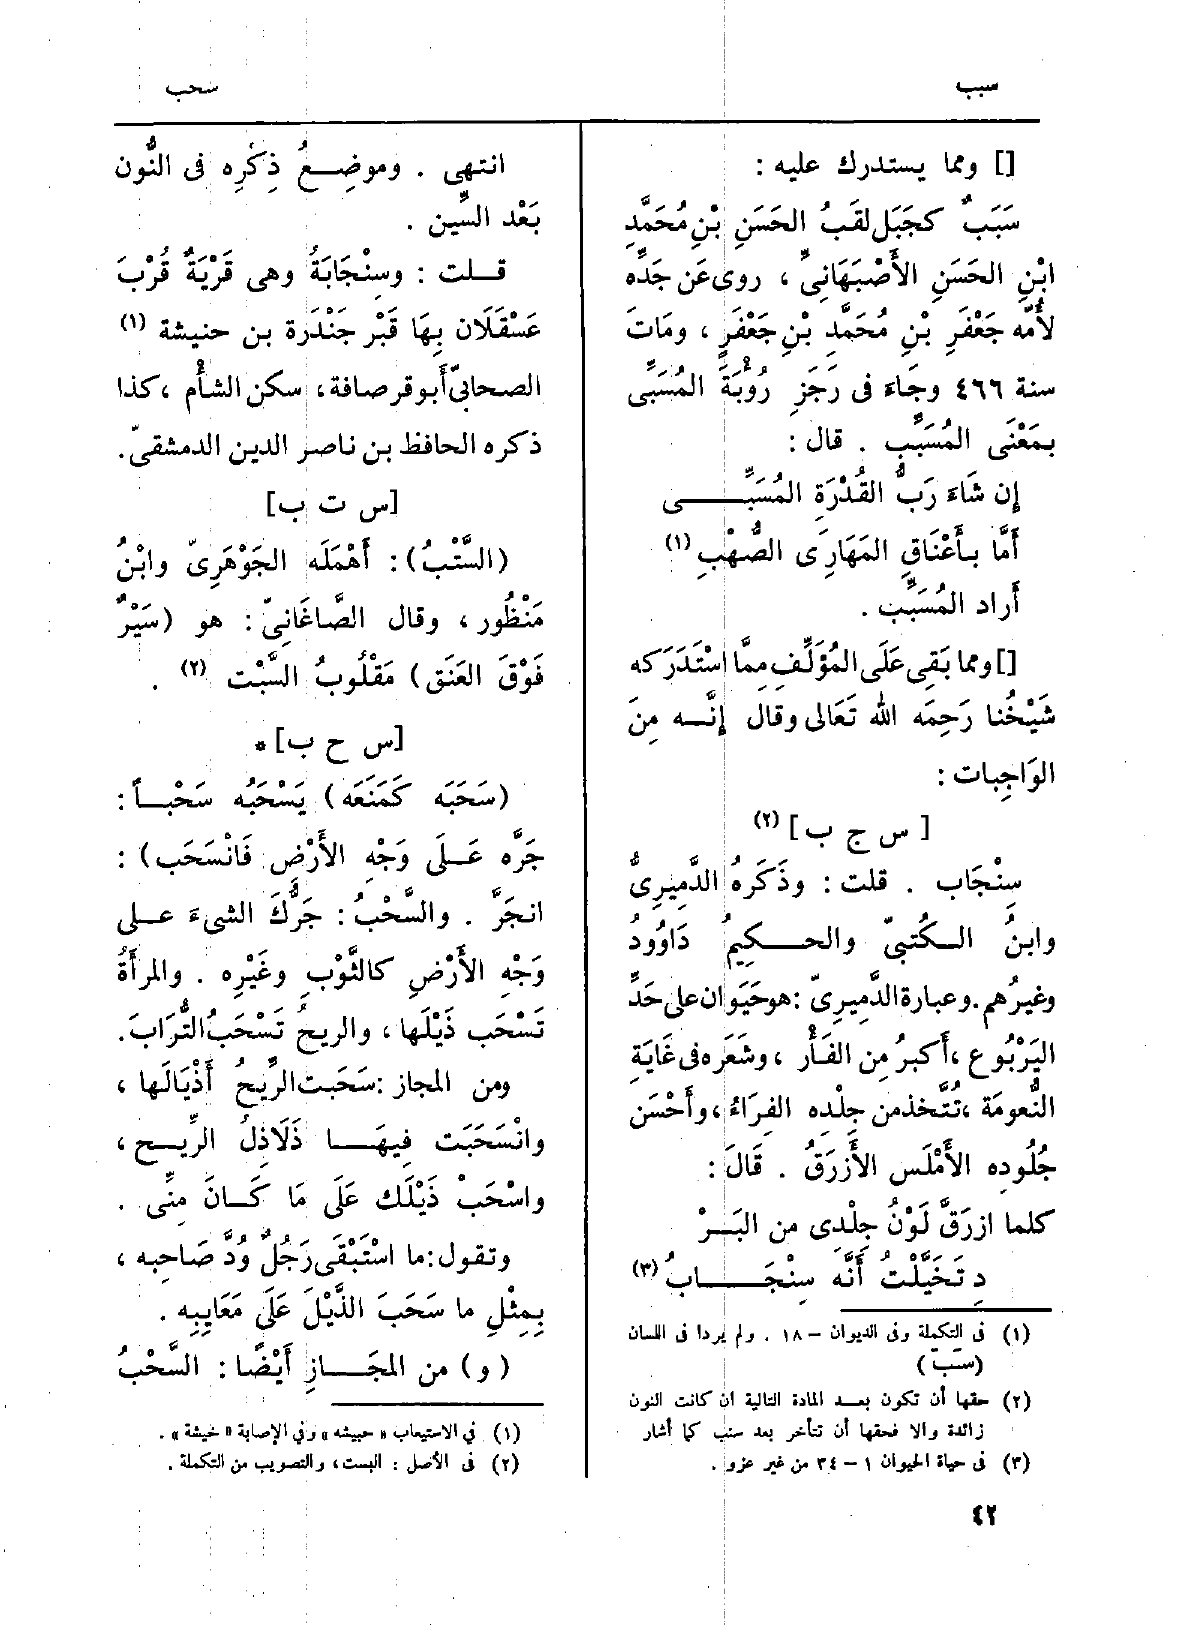 سبب
سحب
[] ومما يستدرك عليه :
سَبَبٌ كجَبَل لقَبُ الحَسَنِ بْنِ مُحَمَّدِ
ابْنِ الحَسَنِ الأَصْبَهَانِيِّ ، روى عَن جَدِّه
لأُمِّه جَعْفَرِ بْنِ مُحَمَّدِ بْنِ جَعْفَرٍ ، ومَاتَ
سنة ٤٦٦ وجَاءَ فى رَجَزِ رُؤْبَةَ المُسَبِّى
بمَعْنَى المُسَبِّبِ . قال :
إِن شَاءَ رَبُّ القُدْرَةِ المُسَبِّى
أَمَّا بأَعْنَاقِ المَهَارِى الصُّهْبِ (١)
أَراد المُسَبِّب .
[] ومما بَقِى عَلَى المُؤَلِّفِ مِمَّا اسْتَدَرَكه
شَيْخُنا رَحِمَه اللّٰه تَعَالى وقال إِنَّه مِنَ
الوَاجِبات :
[ س ج ب ] (٢)
سِنْجَاب . قلت : وذَكَرَهُ الدَّمِيرِىُّ
وابنُ الكُتبِىّ والحكِيمُ دَاوُودُ
وغيرُهم . وعبارة الدَّمِيرِىّ : هو حَيَوان على حَدِّ
اليَرْبُوع ، أَكبرُ مِن الفَأْر ، وشَعَره فى غَايَةِ
النُّعومَة ، تُتَّخذ من جِلدِه الفِرَاءُ ، وأَحْسَن
جُلُودِه الأَمْلَس الأَزرَقُ . قَالَ :
كلما ازرَقَّ لَوْنُ جلْدى من البَرْ
دِ تَخَيَّلْتُ أَنَّه سِنْجَابُ (٣)
(١) فى التكملة وفى الديوان – ١٨ . ولم يردا فى اللسان
(سبب)
(٢) حقها أن تكون بعد المادة التالية ان كانت النون
زائدة والا فحقها أن تتأخر بعد سنب كما أشار
(٣) فى حياة الحيوان ١ – ٣٤ من غير عزو .
انتهى . وموضِعُ ذِكْرِه فى النُّون
بَعْد السِّين .
قلت : وسِنْجَابَةُ وهى قَرْيَةٌ قُرْبَ
عَسْقَلَان بِهَا قَبْر جَنْدَرَة بن حنيشة (١)
الصحابيّ أَبو قرصافة ، سكن الشأْم ، كذا
ذكره الحافظ بن ناصر الدين الدمشقىّ .
[س ت ب]
(السَّتْبُ) : أَهْمَلَه الجَوْهَرِىّ وابْنُ
مَنْظُور ، وقال الصَّاغَانِىّ : هو (سَيْرٌ
فَوْقَ العَنَق) مَقْلُوبُ السَّبْت (٢) .
[س ح ب] *
(سَحَبَه كَمَنَعَه) يَسْحَبُه سَحْباً :
جَرَّه عَلَى وَجْهِ الأَرْضِ فَانْسَحَب) :
انجَرَّ . والسَّحْبُ : جَرُّكَ الشىءَ على
وَجْهِ الأَرْضِ كالثَّوْبِ وغَيْرِه . والمرأَةُ
تَسْحَب ذَيْلَها ، والريحُ تَسْحَبُ التُّرَابَ .
ومن المجاز : سَحَبت الرِّيحُ أَذْيَالَها ،
وانْسَحَبَت فِيهَا ذَلَاذِلُ الرِّيح ،
واسْحَبْ ذَيْلَك عَلَى مَا كَانَ مِنِّى .
وتقول : ما اسْتَبْقَى رَجُلٌ وُدَّ صَاحِبِه ،
بِمِثْلِ ما سَحَبَ الذَّيْلَ عَلَى مَعَايِبِه .
( و ) من المجَازِ أَيْضًا : السَّحْبُ
(١) في الاستيعاب « حبيشه » وفي الإصابة « خيشة » .
(٢) فى الأصل : البست ، والتصويب من التكملة .
٤٢